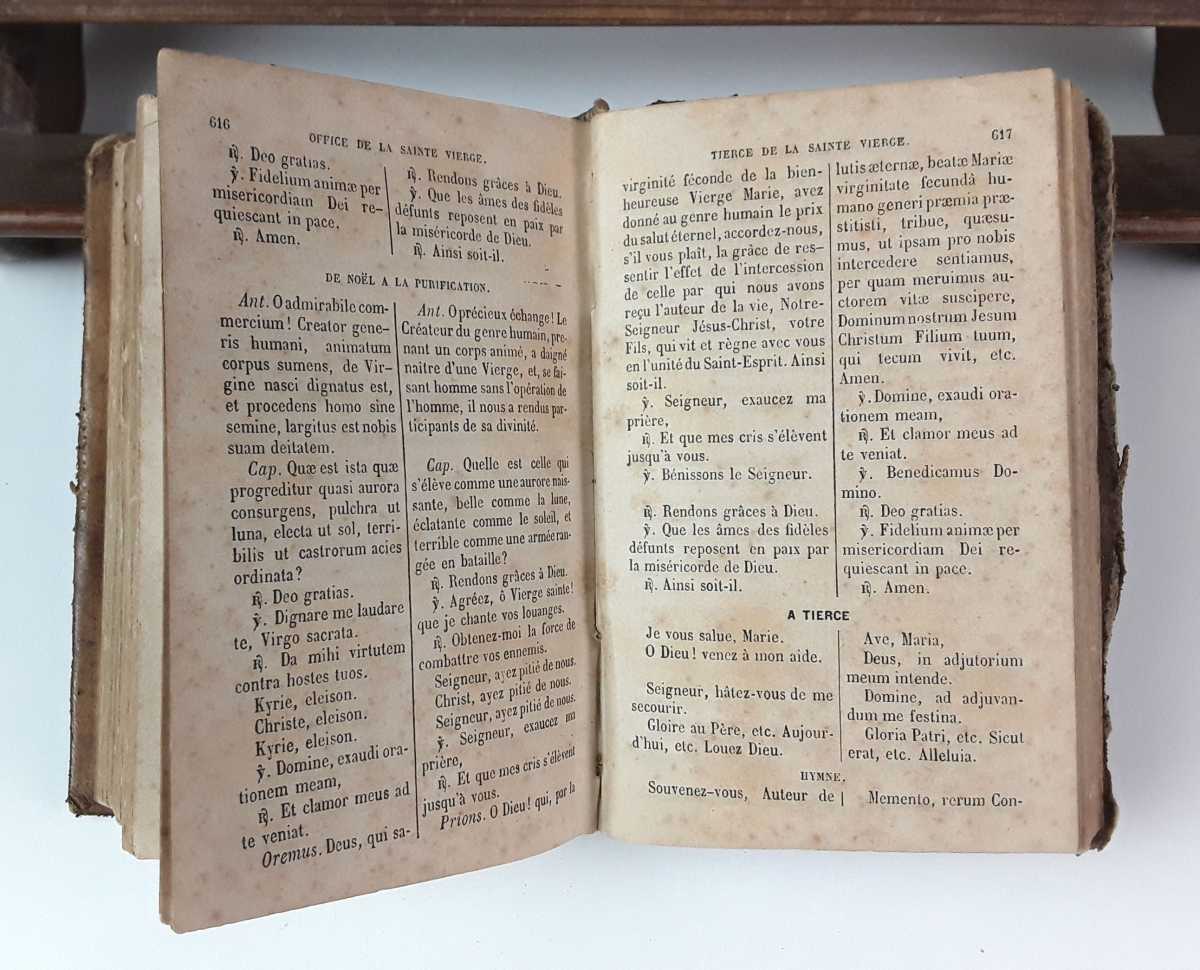 616
OFFICE DE LA SAINTE VIERGE.
℟. Deo gratias.
℣. Fidelium animæ per
misericordiam Dei re-
quiescant in pace.
℟. Amen.
℟. Rendons grâces à Dieu.
℣. Que les âmes des fidèles
défunts reposent en paix par
la miséricorde de Dieu.
℟. Ainsi soit-il.
DE NOËL A LA PURIFICATION.
Ant. O admirabile com-
mercium! Creator gene-
ris humani, animatum
corpus sumens, de Vir-
gine nasci dignatus est,
et procedens homo sine
semine, largitus est nobis
suam deitatem.
Cap. Quæ est ista quæ
progreditur quasi aurora
consurgens, pulchra ut
luna, electa ut sol, terri-
bilis ut castrorum acies
ordinata?
℟. Deo gratias.
℣. Dignare me laudare
te, Virgo sacrata.
℟. Da mihi virtutem
contra hostes tuos.
Kyrie, eleison.
Christe, eleison.
Kyrie, eleison.
℣. Domine, exaudi ora-
tionem meam,
℟. Et clamor meus ad
te veniat.
Oremus. Deus, qui sa-
Ant. O précieux échange! Le
Créateur du genre humain, pre-
nant un corps animé, a daigné
naître d'une Vierge, et, se fai-
sant homme sans l'opération de
l'homme, il nous a rendus par-
ticipants de sa divinité.
Cap. Quelle est celle qui
s'élève comme une aurore nais-
sante, belle comme la lune,
éclatante comme le soleil, et
terrible comme une armée ran-
gée en bataille?
℟. Rendons grâces à Dieu.
℣. Agréez, ô Vierge sainte!
que je chante vos louanges.
℟. Obtenez-moi la force de
combattre vos ennemis.
Seigneur, ayez pitié de nous.
Christ, ayez pitié de nous.
Seigneur, ayez pitié de nous.
℣. Seigneur, exaucez ma
prière,
℟. Et que mes cris s'élèvent
jusqu'à vous.
Prions. O Dieu! qui, par la
TIERCE DE LA SAINTE VIERGE.
617
virginité féconde de la bien-
heureuse Vierge Marie, avez
donné au genre humain le prix
du salut éternel, accordez-nous,
s'il vous plaît, la grâce de res-
sentir l'effet de l'intercession
de celle par qui nous avons
reçu l'auteur de la vie, Notre-
Seigneur Jésus-Christ, votre
Fils, qui vit et règne avec vous
en l'unité du Saint-Esprit. Ainsi
soit-il.
℣. Seigneur, exaucez ma
prière,
℟. Et que mes cris s'élèvent
jusqu'à vous.
℣. Bénissons le Seigneur.
℟. Rendons grâces à Dieu.
℣. Que les âmes des fidèles
défunts reposent en paix par
la miséricorde de Dieu.
℟. Ainsi soit-il.
lutis æternæ, beatæ Mariæ
virginitate fecundâ hu-
mano generi præmia præ-
stitisti, tribue, quæsu-
mus, ut ipsam pro nobis
intercedere sentiamus,
per quam meruimus au-
ctorem vitæ suscipere,
Dominum nostrum Jesum
Christum Filium tuum,
qui tecum vivit, etc.
Amen.
℣. Domine, exaudi ora-
tionem meam,
℟. Et clamor meus ad
te veniat.
℣. Benedicamus Do-
mino.
℟. Deo gratias.
℣. Fidelium animæ per
misericordiam Dei re-
quiescant in pace.
℟. Amen.
A TIERCE
Je vous salue, Marie.
O Dieu! venez à mon aide.
Seigneur, hâtez-vous de me
secourir.
Gloire au Père, etc. Aujour-
d'hui, etc. Louez Dieu.
Ave, Maria,
Deus, in adjutorium
meum intende.
Domine, ad adjuvan-
dum me festina.
Gloria Patri, etc. Sicut
erat, etc. Alleluia.
HYMNE.
Souvenez-vous, Auteur de
Memento, rerum Con-